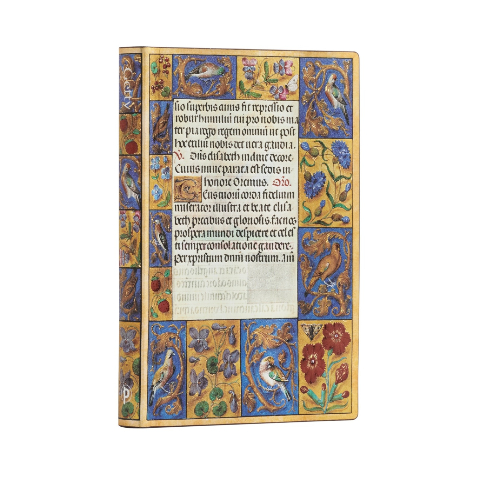 Daily
sio superbis cuius fit repressio et
robur humiliū pro nobis ma
ter pia rogo regem omniū ut post
hoc exiliū nobis det vera gaudia.
V. Dūs elisabeth induit decore
Cuius nunc parata est sedes in
honore Oremus. Oro.
Tuorum corda fidelium
miserator illustra et beate elisa
beth precibus et gloriosis fac nos
prospera mundi despicere et celes
ti semper consolatione gaudere.
Per xpistum dnm nostrum. am